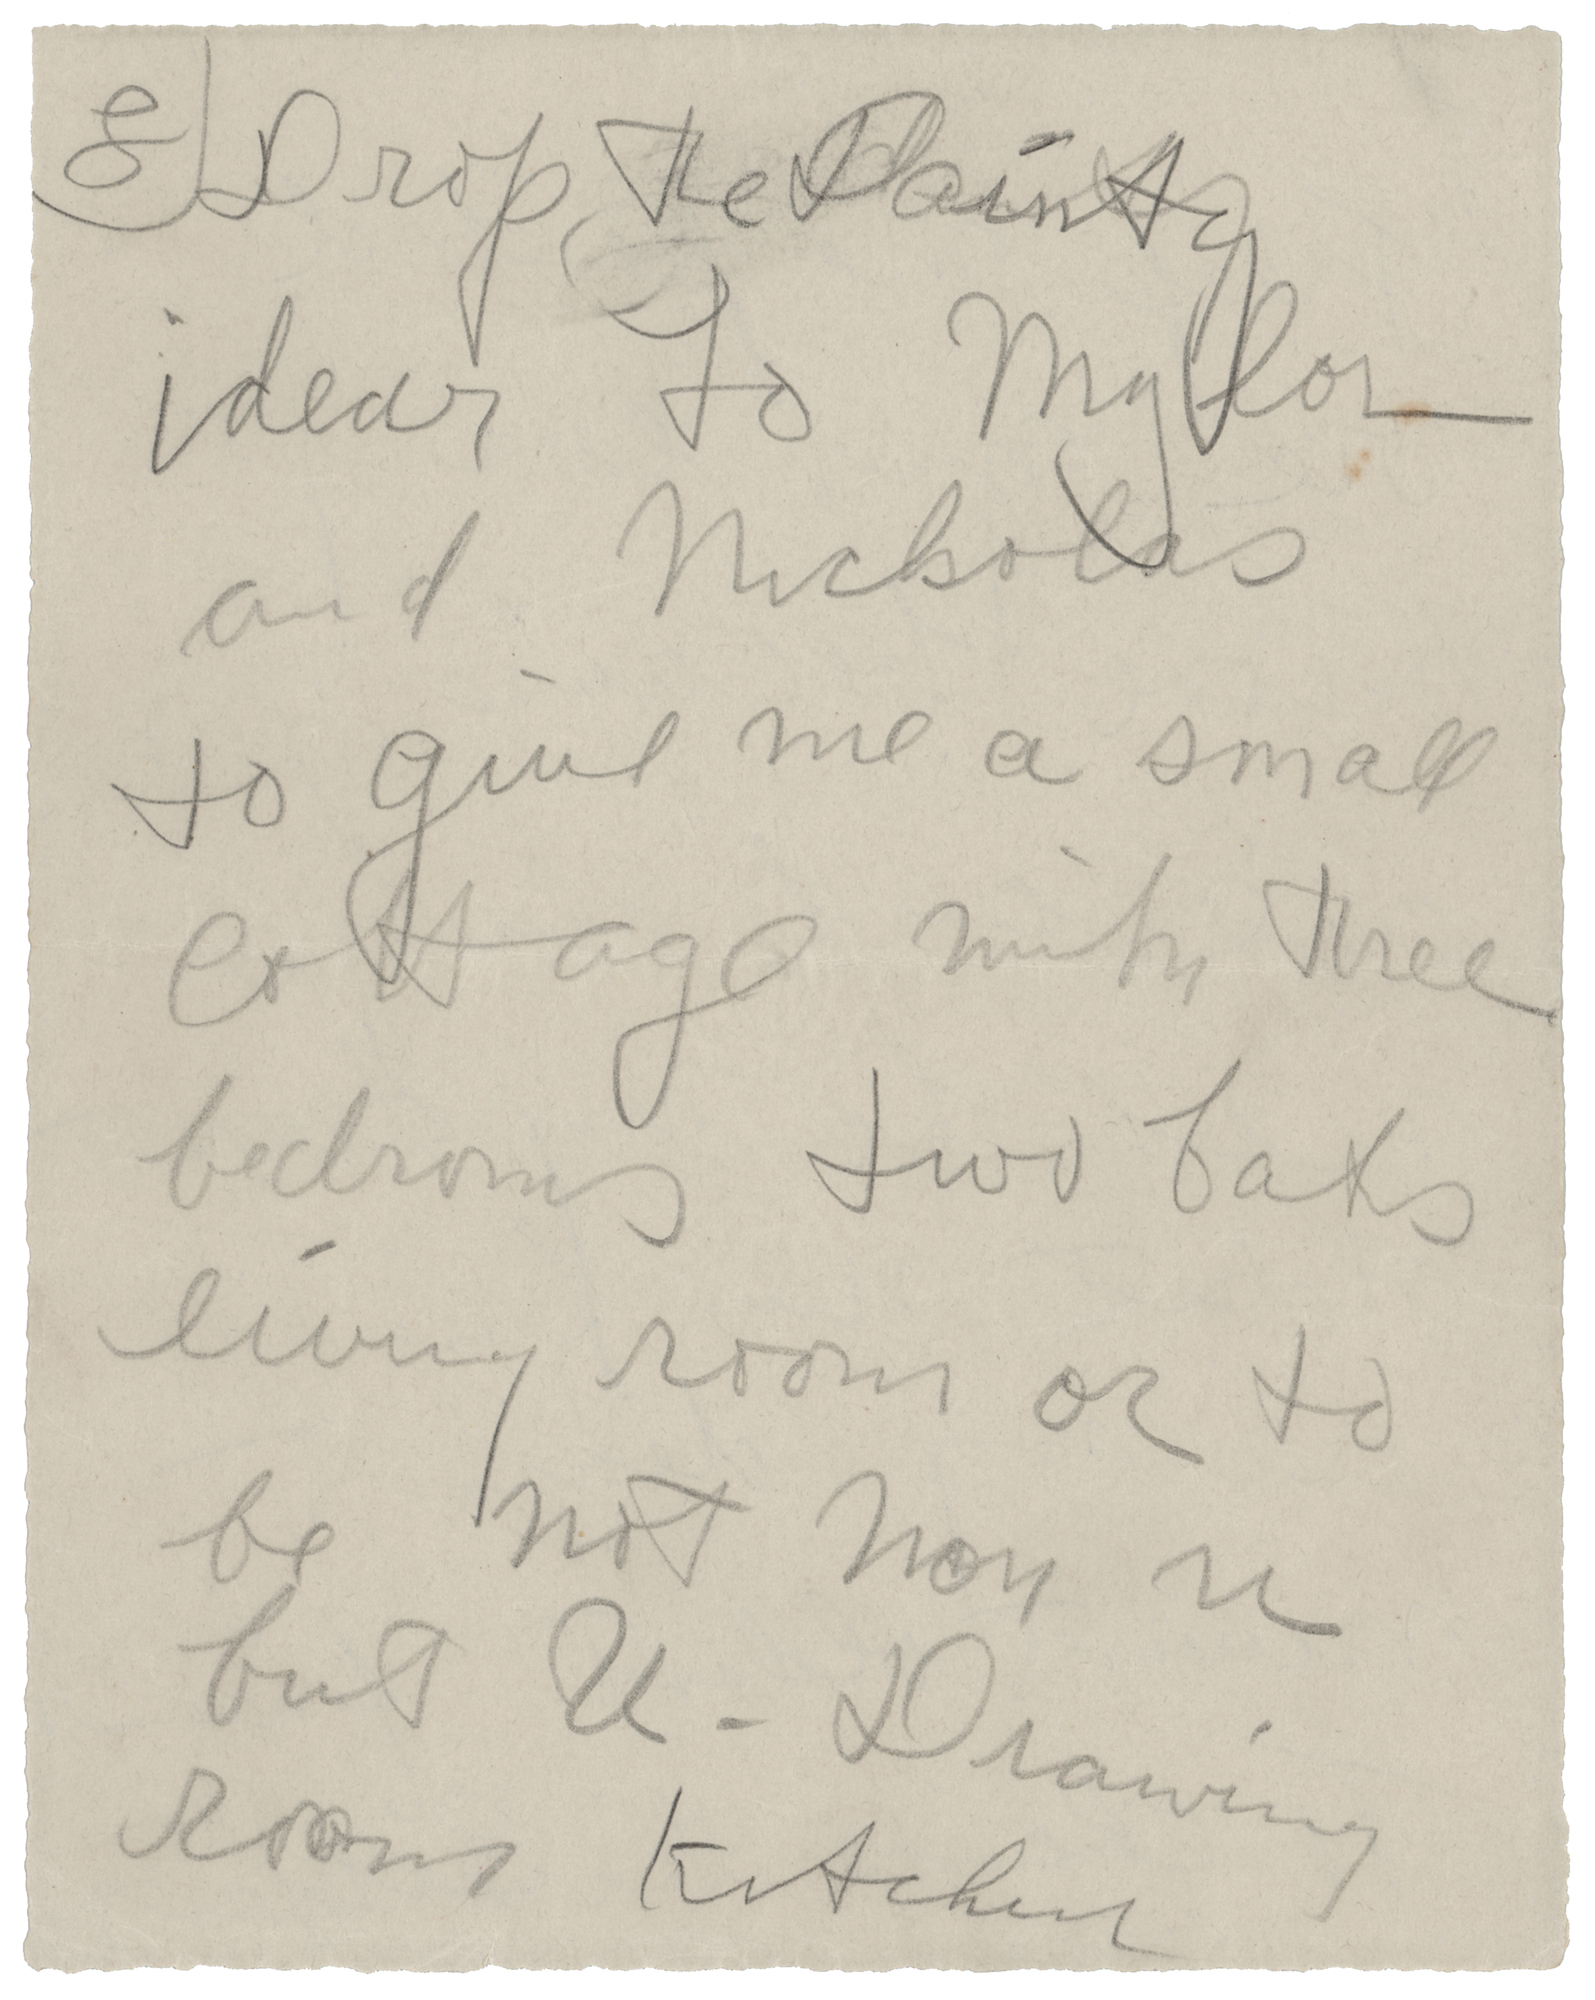 8) Drop the Dainty
idear to Mylor
and Nicholas
to give me a small
cottage with three
bedroms two baths
living room or to
be not non u
but U - Drawing
room kitchen